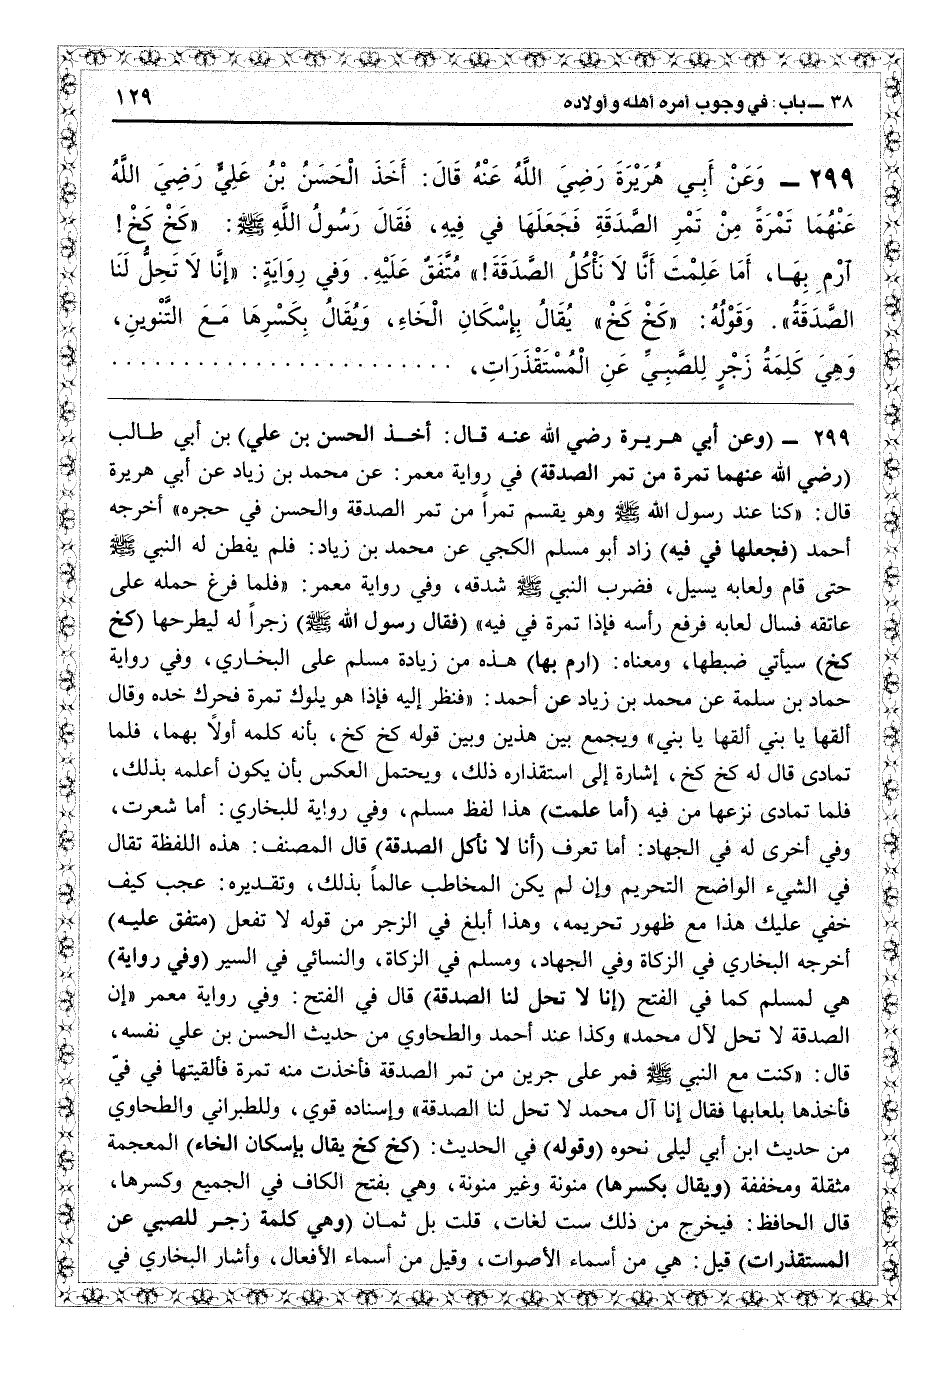 ٣٨ ـ باب: في وجوب أمره أهله وأولاده
١٢٩
٢٩٩ ـ وَعَنْ أَبِي هُرَيْرَةَ رَضِيَ اللَّهُ عَنْهُ قَالَ: أَخَذَ الْحَسَنُ بْنُ عَلِيٍّ رَضِيَ اللَّهُ
عَنْهُمَا تَمْرَةً مِنْ تَمْرِ الصَّدَقَةِ فَجَعَلَهَا فِي فِيهِ، فَقَالَ رَسُولُ اللَّهِ ﷺ: «كَخْ كَخْ!
آرْمِ بِهَا، أَمَا عَلِمْتَ أَنَّا لَا نَأْكُلُ الصَّدَقَةَ!» مُتَّفَقٌ عَلَيْهِ. وَفِي رِوَايَةٍ: «إِنَّا لَا تَحِلُّ لَنَا
الصَّدَقَةُ». وَقَوْلُهُ: «كَخْ كَخْ» يُقَالُ بِإِسْكَانِ الْخَاءِ، وَيُقَالُ بِكَسْرِهَا مَعَ التَّنْوِينِ،
وَهِيَ كَلِمَةُ زَجْرٍ لِلصَّبِيِّ عَنِ الْمُسْتَقْذَرَاتِ، . . . . . . . . . . . . . . . . . . . . . . .
٢٩٩ ـ (وعن أبي هريرة رضي الله عنه قال: أخذ الحسن بن علي) بن أبي طالب
(رضي الله عنهما تمرة من تمر الصدقة) في رواية معمر: عن محمد بن زياد عن أبي هريرة
قال: «كنا عند رسول الله ﷺ وهو يقسم تمراً من تمر الصدقة والحسن في حجره» أخرجه
أحمد (فجعلها في فيه) زاد أبو مسلم الكجي عن محمد بن زياد: فلم يفطن له النبي ﷺ
حتى قام ولعابه يسيل، فضرب النبي ﷺ شدقه، وفي رواية معمر: «فلما فرغ حمله على
عاتقه فسال لعابه فرفع رأسه فإذا تمرة في فيه» (فقال رسول الله ﷺ) زجراً له ليطرحها (كخ
كخ) سيأتي ضبطها، ومعناه: (ارم بها) هذه من زيادة مسلم على البخاري، وفي رواية
حماد بن سلمة عن محمد بن زياد عن أحمد: «فنظر إليه فإذا هو يلوك تمرة فحرك خده وقال
ألقها يا بني ألقها يا بني» ويجمع بين هذين وبين قوله كخ كخ، بأنه كلمه أولاً بهما، فلما
تمادى قال له كخ كخ، إشارة إلى استقذاره ذلك، ويحتمل العكس بأن يكون أعلمه بذلك،
فلما تمادى نزعها من فيه (أما علمت) هذا لفظ مسلم، وفي رواية للبخاري: أما شعرت،
وفي أخرى له في الجهاد: أما تعرف (أنا لا نأكل الصدقة) قال المصنف: هذه اللفظة تقال
في الشيء الواضح التحريم وإن لم يكن المخاطب عالماً بذلك، وتقديره: عجب كيف
خفي عليك هذا مع ظهور تحريمه، وهذا أبلغ في الزجر من قوله لا تفعل (متفق عليه)
أخرجه البخاري في الزكاة وفي الجهاد، ومسلم في الزكاة، والنسائي في السير (وفي رواية)
هي لمسلم كما في الفتح (إنا لا تحل لنا الصدقة) قال في الفتح: وفي رواية معمر «إن
الصدقة لا تحل لآل محمد» وكذا عند أحمد والطحاوي من حديث الحسن بن علي نفسه،
قال: «كنت مع النبي ﷺ فمر على جرين من تمر الصدقة فأخذت منه تمرة فألقيتها في فيّ
فأخذها بلعابها فقال إنا آل محمد لا تحل لنا الصدقة» وإسناده قوي، وللطبراني والطحاوي
من حديث ابن أبي ليلى نحوه (وقوله) في الحديث: (كخ كخ يقال بإسكان الخاء) المعجمة
مثقلة ومخففة (ويقال بكسرها) منونة وغير منونة، وهي بفتح الكاف في الجميع وكسرها،
قال الحافظ: فيخرج من ذلك ست لغات، قلت بل ثمان (وهي كلمة زجر للصبي عن
المستقذرات) قيل: هي من أسماء الأصوات، وقيل من أسماء الأفعال، وأشار البخاري في